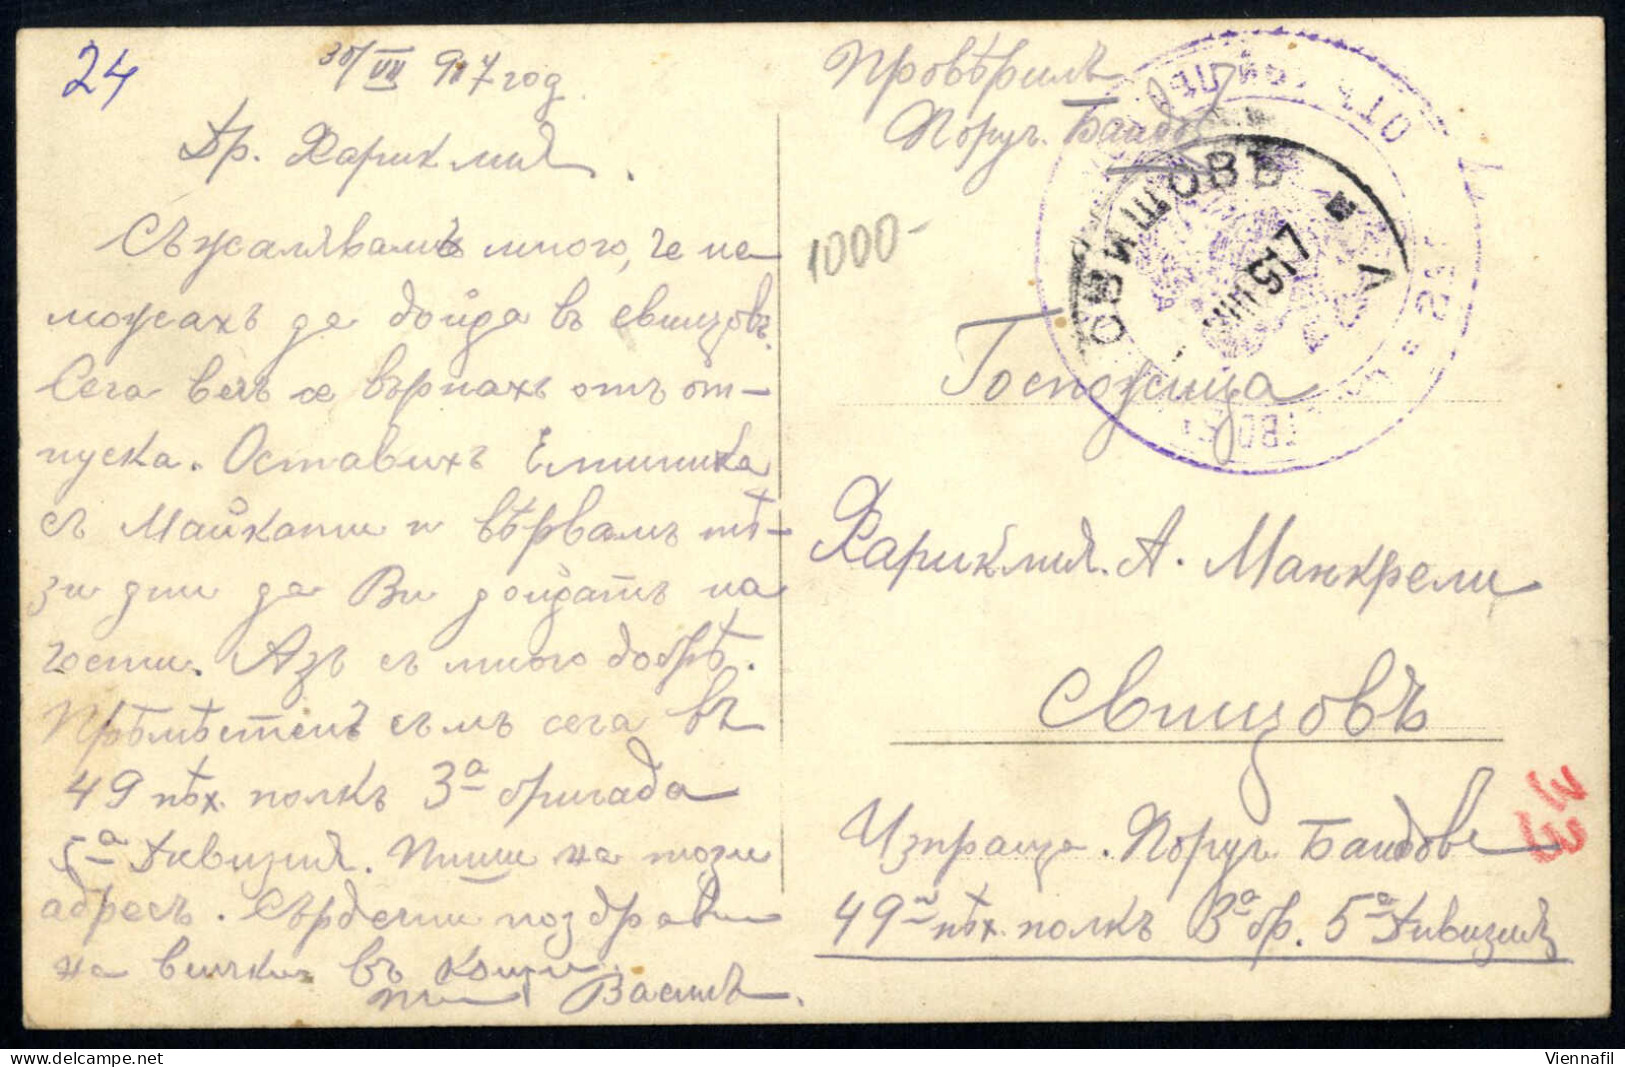 24
30/VII 917 год
Др. Хариклия.
Съжалявамъ много, че не
можахъ да дойда въ Свищовъ.
Сега вечъ се върнахъ отъ от-
пуска. Оставихъ Еминика
съ Майката и вѣрвамъ тѣ-
зи дни да Ви дойдатъ на
гости. Азъ съ много добрѣ.
Прѣмѣстенъ съмъ сега въ
49 пѣх. полкъ 3а бригада
5а Дивизия. Пиши на този
адресъ. Сърдечни поздрави
на всички въ кѫщи.
Василъ.
Провѣрилъ
Поруч. Баидовъ
1000-
СВИЩОВЪ
15.VIII.17
ОТЪ
Госпожица
Хариклия. А. Манкрели
Свищовъ
Изпраща. Поруч. Баидовъ
49й пѣх. полкъ 3а бр. 5а Дивизия
Viennafil